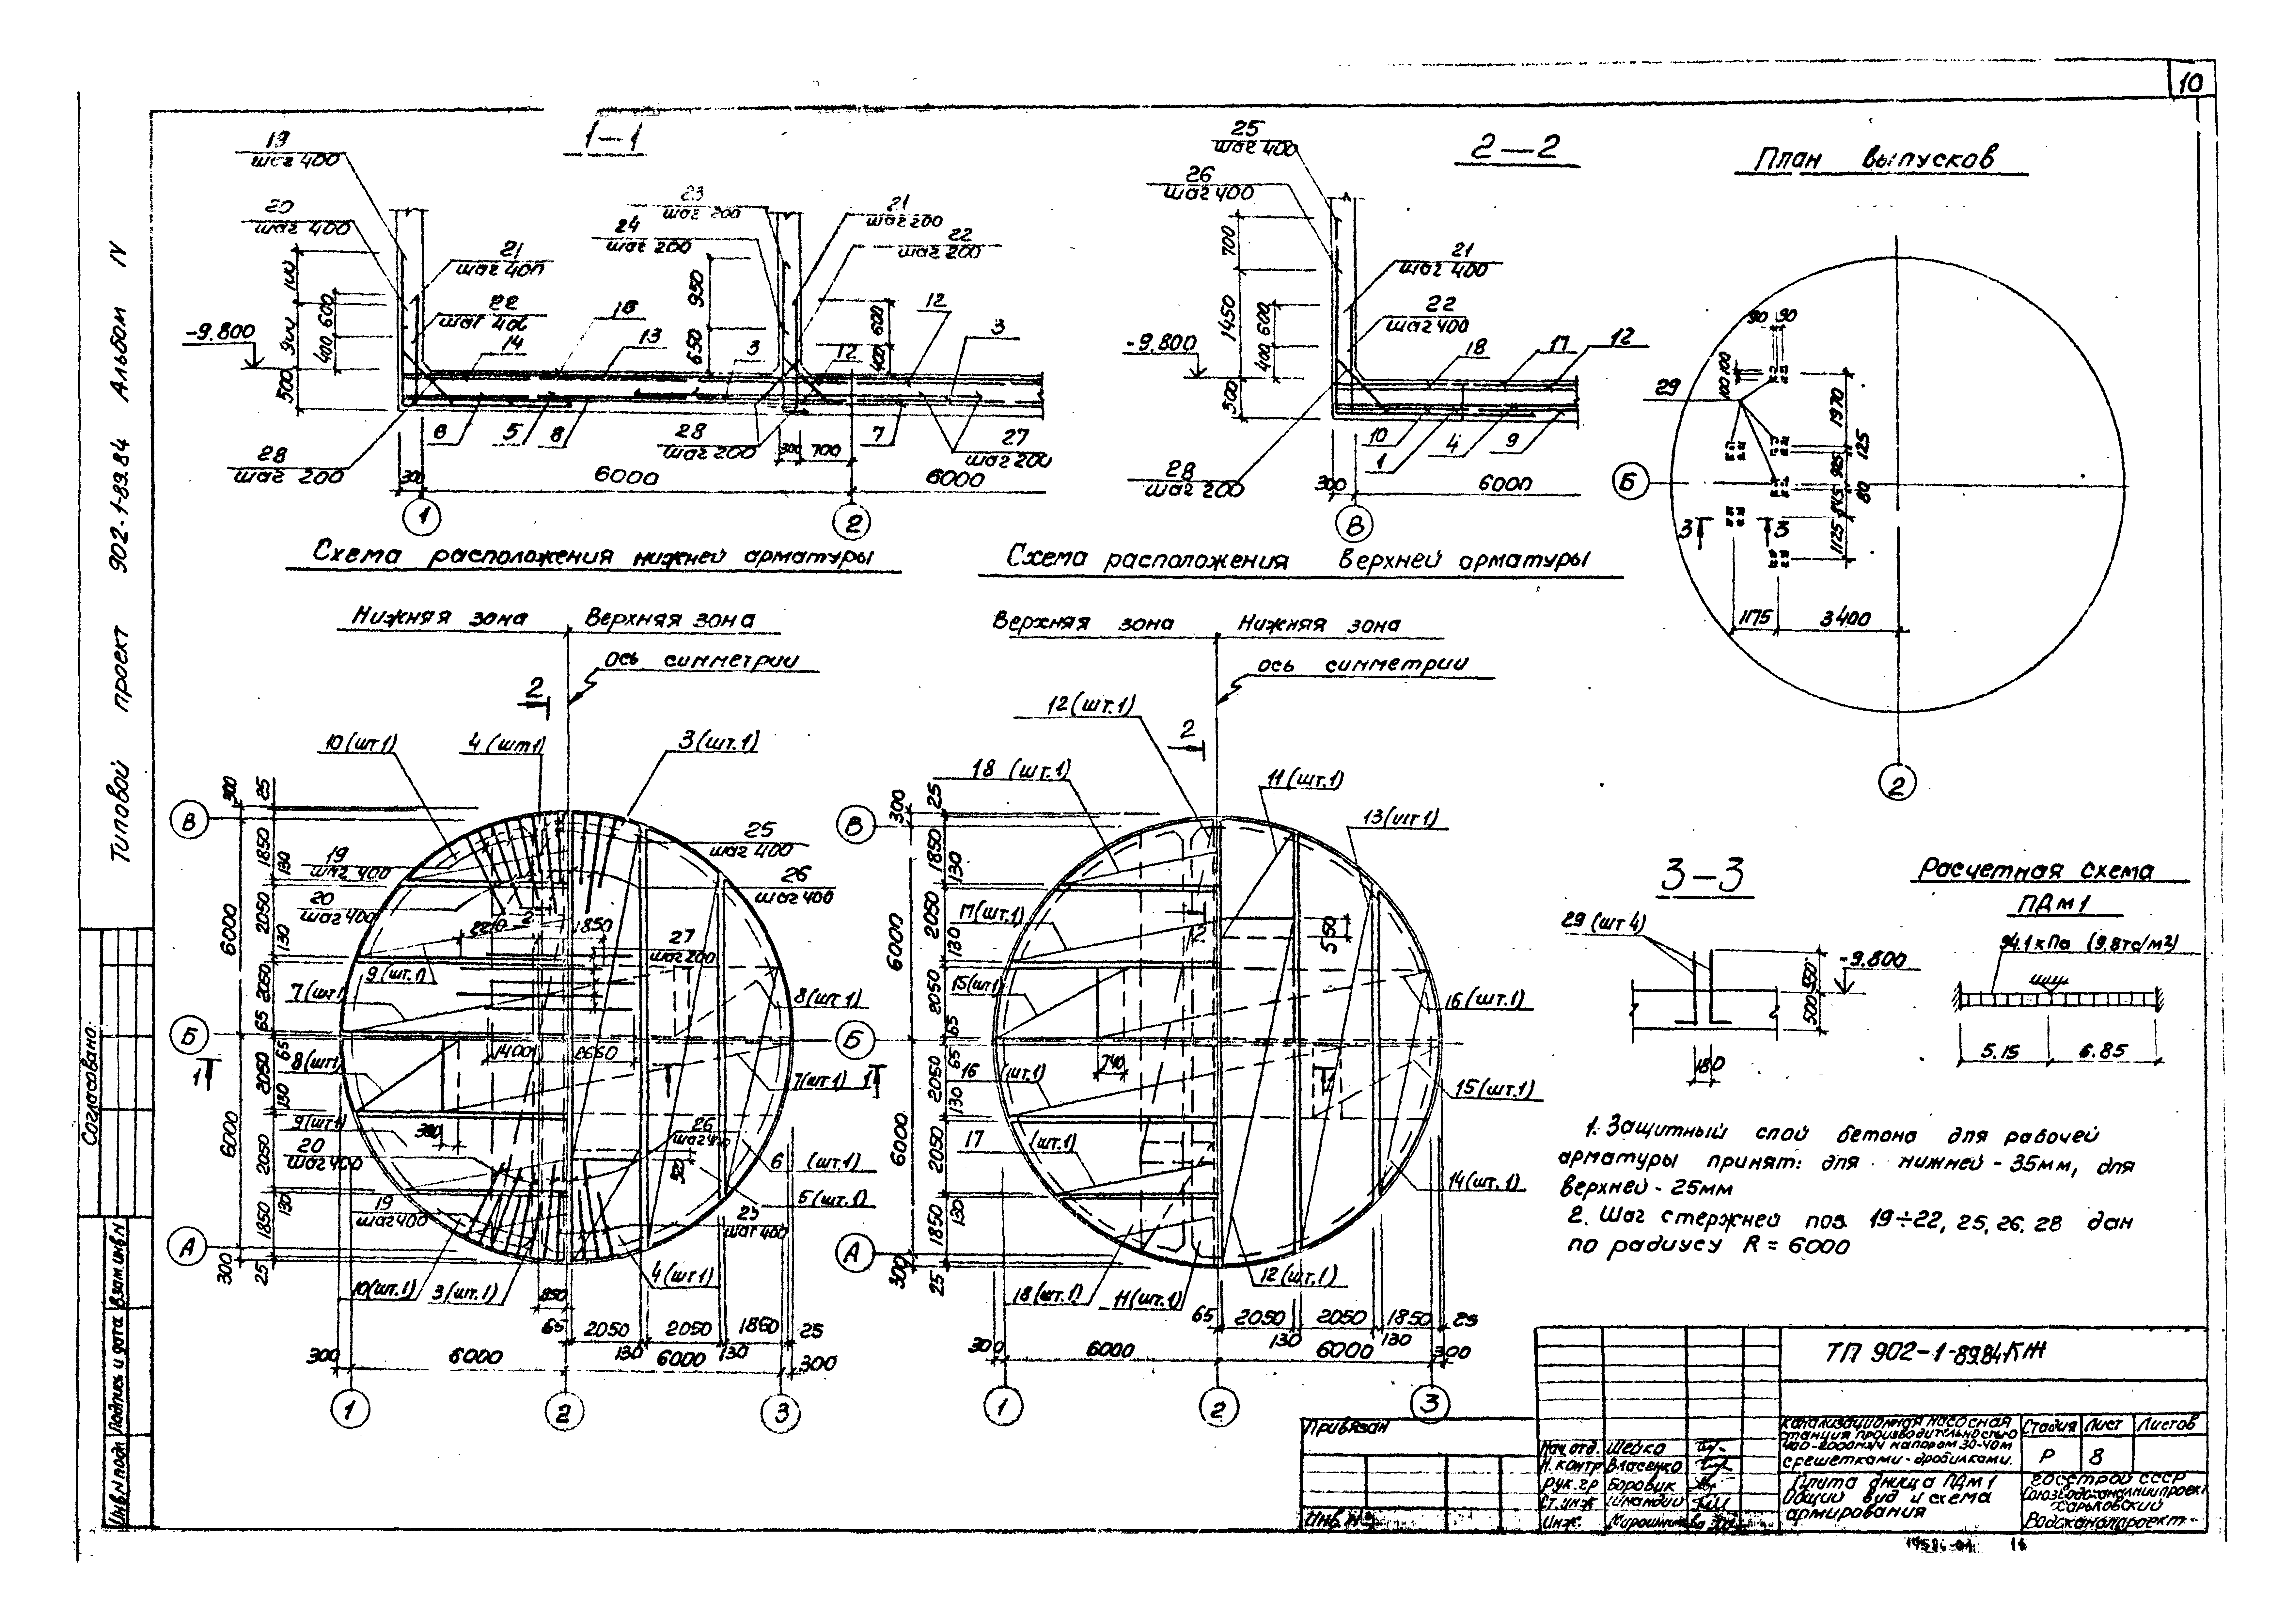 10
Типовой проект 902-1-89.84 Альбом IV
1-1
19
шаг 400
20
шаг 400
21
шаг 400
22
23
шаг 200
24
шаг 200
21
шаг 200
22
шаг 200
-9.800
500
400 600
650
950
400 600
14
13
3
12
12
3
6
5
8
7
28
шаг 200
28
шаг 200
27
шаг 200
300
6000
300
700
6000
1
2
2-2
25
шаг 400
26
шаг 400
21
шаг 400
22
шаг 400
700
1450
400 600
500
-9.800
18
17
12
10
1
4
9
28
шаг 200
300
6000
В
План выпусков
90 90
100 100
29
1970
125
925
80
845
1125
Б
3
3
1175
3400
2
Схема расположения нижней арматуры
Нижняя зона
Верхняя зона
ось симметрии
2
10 (шт1)
4 (шт1)
3 (шт.1)
300
25
В
1850
130
19
шаг 400
25
шаг 400
26
шаг 400
20
шаг 400
2050
6000
130
1850
27
шаг 200
9 (шт.1)
7 (шт1)
8 (шт.1)
2050
65
Б
1
65
1400
2660
8 (шт1)
7 (шт.1)
1
2050
130
9 (шт1)
20
шаг 400
26
6000
2050
6 (шт.1)
520
5 (шт.1)
130
19
шаг 400
25
шаг 400
1850
А
300
25
10 (шт.1)
3 (шт.1)
850
4 (шт1)
65
2050
2050
1850
25
130
130
300
6000
6000
300
1
2
3
Схема расположения верхней арматуры
Верхняя зона
Нижняя зона
ось симметрии
12 (шт.1)
2
18 (шт.1)
11 (шт.1)
13 (шт1)
300
25
В
1850
130
2050
6000
17 (шт.1)
550
130
2050
15 (шт1)
16 (шт.1)
65
Б
740
65
16 (шт.1)
15 (шт.1)
2050
130
6000
17 (шт.1)
2050
14 (шт.1)
130
1850
А
300
25
18 (шт.1)
11 (шт.1)
12 (шт.1)
65
2050
2050
1850
25
130
130
300
6000
6000
300
1
2
3
3-3
29 (шт 4)
-9.800
550
500
180
Расчетная схема
ПДм1
94.1 кПа (9.8тс/м²)
5.15
6.85
1. Защитный слой бетона для рабочей
арматуры принят: для нижней - 35мм, для
верхней - 25мм
2. Шаг стержней поз. 19÷22, 25, 26, 28 дан
по радиусу R = 6000
Согласовано:
Инв.N подл. Подпись и дата Взам.инв.N
Привязан
Инв.N
Нач.отд. Шейко
Н.контр Власенко
Рук.гр Боровик
Ст.инж
Инж.
ТП 902-1-89.84-КЖ
Канализационная насосная
станция производительностью
400-2000м³/ч напором 30-40м
с решетками-дробилками.
Стадия Лист Листов
Р 8
Плита днища ПДм1
Общий вид и схема
армирования
Госстрой СССР
Союзводоканалниипроект
Харьковский
Водоканалпроект